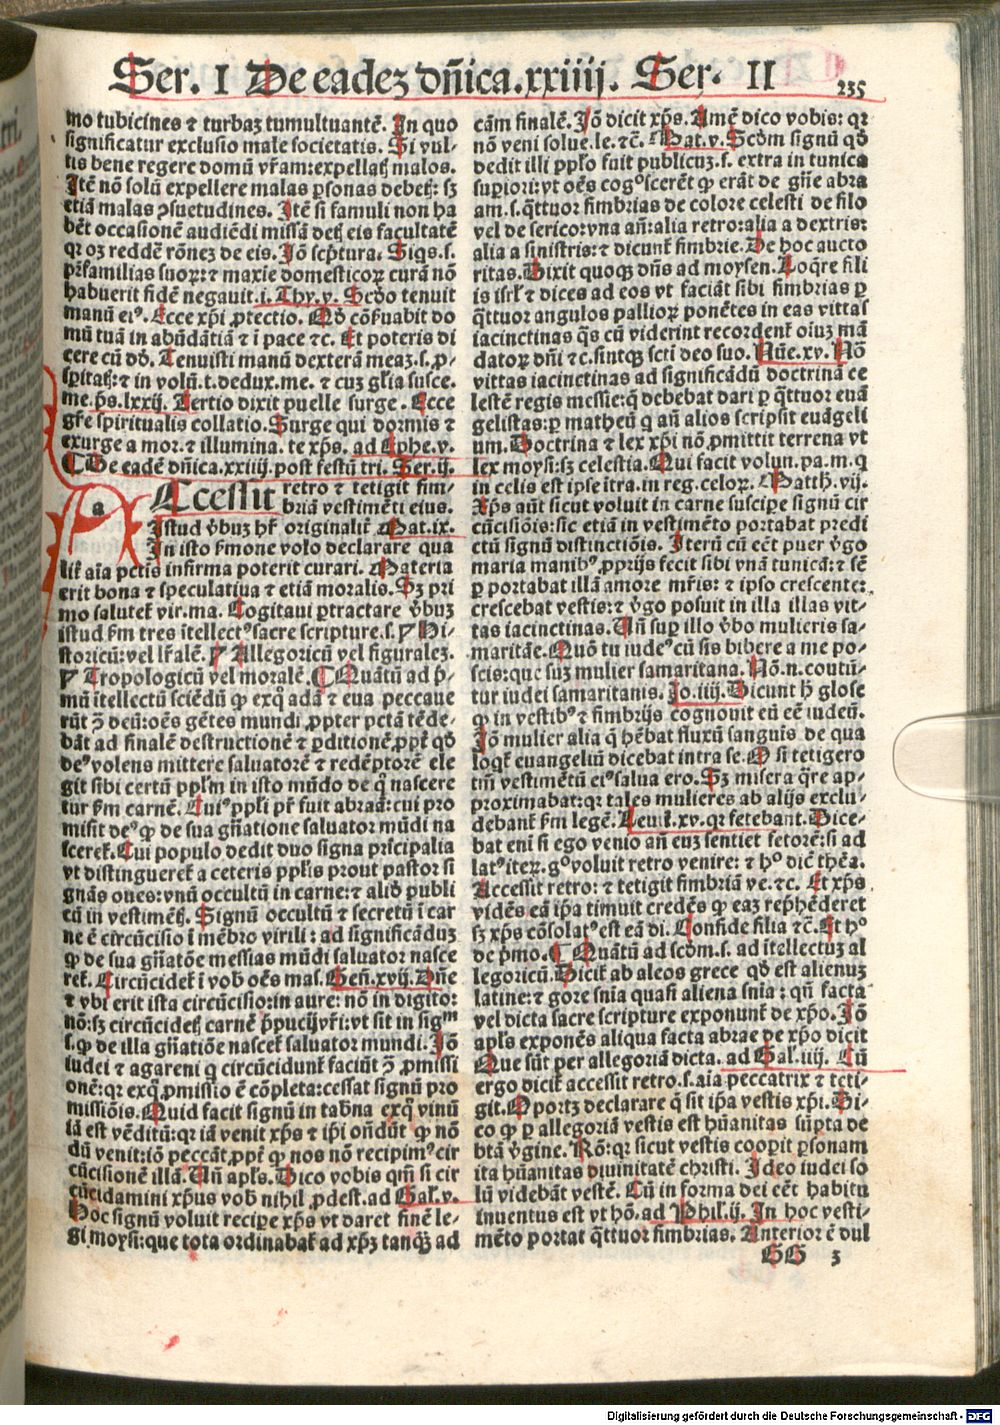 Ser. I De eadez dñica.xxiiij. Ser. II
235
mo tubicines ⁊ turbaꝫ tumultuantē. In quo
significatur exclusio male societatis. Si vul-
tis bene regere domū vr̄am:expellatꝭ malos.
Itē nō solū expellere malas ꝑsonas debetꝭ: sꝫ
etiā malas ꝯsuetudines. Itē si famuli non ha
bēt occasionē audiēdi missā detꝭ eis facultatē
qꝛ oꝫ reddē rōneꝫ de eis. Iō scꝑtura. Siqs.s.
pr̄familias suoꝝ: ⁊ maxie domesticoꝝ curā nō
habuerit fidē negauit.i. Thy.v. Scd̄o tenuit
manū eiꝰ. Ecce xp̄i ꝓtectio. Qd̄ cōẜuabit do
mū tuā in abūdātiā ⁊ ī pace ⁊c. Et poteris di
cere cū dō. Tenuisti manū dexterā meaꝫ.s.ꝓ-
sꝑitatꝭ: ⁊ in volū.t.dedux.me. ⁊ cuꝫ gl̄ia susce.
me.ps.lxxij. Tertio dixit puelle surge. Ecce
gr̄e spiritualis collatio. Surge qui dormis ⁊
exurge a mor. ⁊ illumina. te xp̄s. ad Ephe.v.
De eadē dñica.xxiiij.post festū tri. Ser.ij.
Accessit retro ⁊ tetigit fim-
a
briā vestimēti eius.
Istud v̄buꝫ hr̄ originalir̄ Mat.ix.
In isto ẜmone volo declarare qua
lit̄ aīa petīs infirma poterit curari. Materia
erit bona ⁊ speculatiua ⁊ etiā moralis. Sꝫ pri
mo salutet̄ vir.ma. Cogitaui ꝑtractare v̄buꝫ
istud ẜm tres ītellectꝰ sacre scripture.s. Hi-
storicū:vel lr̄alē. Allegoricū vel figuraleꝫ.
Tropologicū vel moralē. Quātū ad p̄-
mū ītellectū sciēdū ꝙ exq̊ adā ⁊ eua peccaue
rūt ꝯ deū:oēs gētes mundi ꝓpter pctā tēde-
bāt ad finalē destructionē ⁊ ꝑditionē,ꝓpt̄ qd̄
deꝰ volens mittere saluatorē ⁊ redēptorē ele
git sibi certū ppl̄m in isto mūdo de q̊ nascere
tur ẜm carnē. Cuiꝰ ppl̄i pr̄ fuit abraā:cui pro
misit deꝰ ꝙ de sua gn̄atione saluator mūdi na
sceret̄. Cui populo dedit duo signa prīcipalia
vt distingueret̄ a ceteris ppl̄is prout pastor si
gnās oues:vnū occultū in carne: ⁊ aliud publi
cū in vestimētꝭ. Signū occultū ⁊ secretū ī car
ne ē circūcisio ī mēbro virili: ad significāduꝫ
ꝙ de sua gn̄atōe messias mūdi saluator nasce
ret̄. Circūcidet̄ ī vob oēs mas.Gen̄.xvij. Dn̄e
⁊ vbi erit ista circūcisio:in aure: nō in digito:
nō:sꝫ circūcidetꝭ carnē p̄pucij vr̄i:vt sit in sigᵐ
s.ꝙ de illa gn̄atiōe nascet̄ saluator mundi. Iō
iudei ⁊ agareni q̄ circūcidunt̄ faciūt ꝯ ꝓmissi
onē:qꝛ exq̊ ꝓmissio ē cōpleta:cessat signū pro
missiōis. Quid facit signū in tabn̄a exq̊ vinū
iā est vēditū:qꝛ iā venit xp̄s ⁊ ip̄i on̄dūt ꝙ nō
dū venit:iō peccāt,ꝓpt̄ ꝙ nos nō recipimꝰ cir
cūcisionē illā. Un̄ apl̄s. Dico vobis qm̄ si cir
cūcidamini xp̄us vob nihil ꝓdest.ad Gal̄.v.
Hoc signū voluit recipe xp̄s vt daret finē le-
gi moysi:que tota ordinabat̄ ad xp̄ꝫ tanꝙꝫ ad
cām finalē. Iō dicit xp̄s. Amē dico vobis: qꝛ
nō veni solue.le.⁊c̄. Mat.v. Scd̄m signū qd̄
dedit illi ppl̄o fuit publicuꝫ.s. extra in tunica
suꝑiori:vt oēs cogºscerēt ꝙ erāt de gn̄e abra
am.s.q̄ttuor fimbrias de colore celesti de filo
vel de serico:vna an̄:alia retro:alia a dextris:
alia a sinistris: ⁊ dicunt̄ fimbrie. De hoc aucto
ritas. Dixit quoqꝫ dn̄s ad moysen. Loq̄re fili
is isrl̄ ⁊ dices ad eos vt faciāt sibi fimbrias ꝑ
q̄ttuor angulos pallioꝝ ponētes in eas vittas
iacinctinas q̄s cū viderint recordent̄ oīuꝫ mā
datoꝝ dn̄i ⁊c.sintqꝫ scti deo suo. Nūe.xv. Nō
vittas iacinctinas ad significādū doctrinā ce
lestē regis messie:q̄ debebat dari ꝑ q̄ttuor euā
gelistas:ꝑ matheū q̄ an̄ alios scripsit euāgeli
um. Doctrina ⁊ lex xp̄i nō ꝓmittit terrena vt
lex moysi:sꝫ celestia. Qui facit volun.pa.m.q
in celis est ipse ītra.in reg.celoꝝ. Matth.vij.
Xp̄s aūt sicut voluit in carne suscipe signū cir
cūcisiōis:sic etiā in vestimēto portabat predi
ctū signū distinctiōis. Iterū cū eēt puer v̄go
maria manibꝰ ꝓprijs fecit sibi vnā tunicā: ⁊ sē
ꝑ portabat illā amore mr̄is: ⁊ ipso crescente:
crescebat vestis: ⁊ v̄go posuit in illa illas vit-
tas iacinctinas. Un̄ suꝑ illo v̄bo mulieris sa-
maritāe. Quō tu iudeꝰ cū sis bibere a me po-
scis:que suꝫ mulier samaritana. Nō.n.coutū-
tur iudei samaritanis. Jo.iiij. Dicunt h̄ glose
ꝙ in vestibꝰ ⁊ fimbrijs cognouit eū eē iudeū.
Iō mulier alia q̄ hēbat fluxū sanguis de qua
loqt̄ euangeliū dicebat intra se. Q si tetigero
tm̄ vestimētū eiꝰ salua ero. Sꝫ misera q̄re ap-
proximabat:qꝛ tales mulieres ab alijs exclu-
debant̄ ẜm legē. Leuit̄.xv.qꝛ fetebant. Dice-
bat eni si ego venio an̄ euꝫ sentiet fetorē:si ad
latꝰ iteꝝ.gº voluit retro venire: ⁊ hº dic̄ thēa.
Accessit retro: ⁊ tetigit fimbriā ve.⁊c. Et xp̄s
vidēs eā ip̄a timuit credēs ꝙ eaꝫ rep̄hēderet
sꝫ xp̄s cōsolatꝰ est eā di. Confide filia ⁊c̄. Et hº
de p̄mo. Quātū ad scd̄m.s. ad ītellectuꝫ al
legoricū. Dicit̄ ab aleos grece qd̄ est alienuꝫ
latine: ⁊ gore sn̄ia quasi aliena sn̄ia: qn̄ facta
vel dicta sacre scripture exponunt̄ de xp̄o. Iō
apl̄s exponēs aliqua facta abrae de xp̄o dicit
Que sūt per allegoriā dicta. ad Gal̄.iiij. Cū
ergo dicit̄ accessit retro.s.aīa peccatrix ⁊ teti-
git. Oportꝫ declarare q̄ sit ip̄a vestis xp̄i. Di-
co ꝙ ꝑ allegoriā vestis est hūanitas sūpta de
btā v̄gine. Rō:qꝛ sicut vestis cooꝑit ꝑsonam
ita hūanitas diuinitatē christi. Ideo iudei so
lū videbāt vestē. Cū in forma dei eēt habitu
inuentus est vt hō.ad Phil̄.ij. In hoc vesti-
mēto portat q̄ttuor fimbrias. Anterior ē dul
GG 3
Digitalisierung gefördert durch die Deutsche Forschungsgemeinschaft - DFG